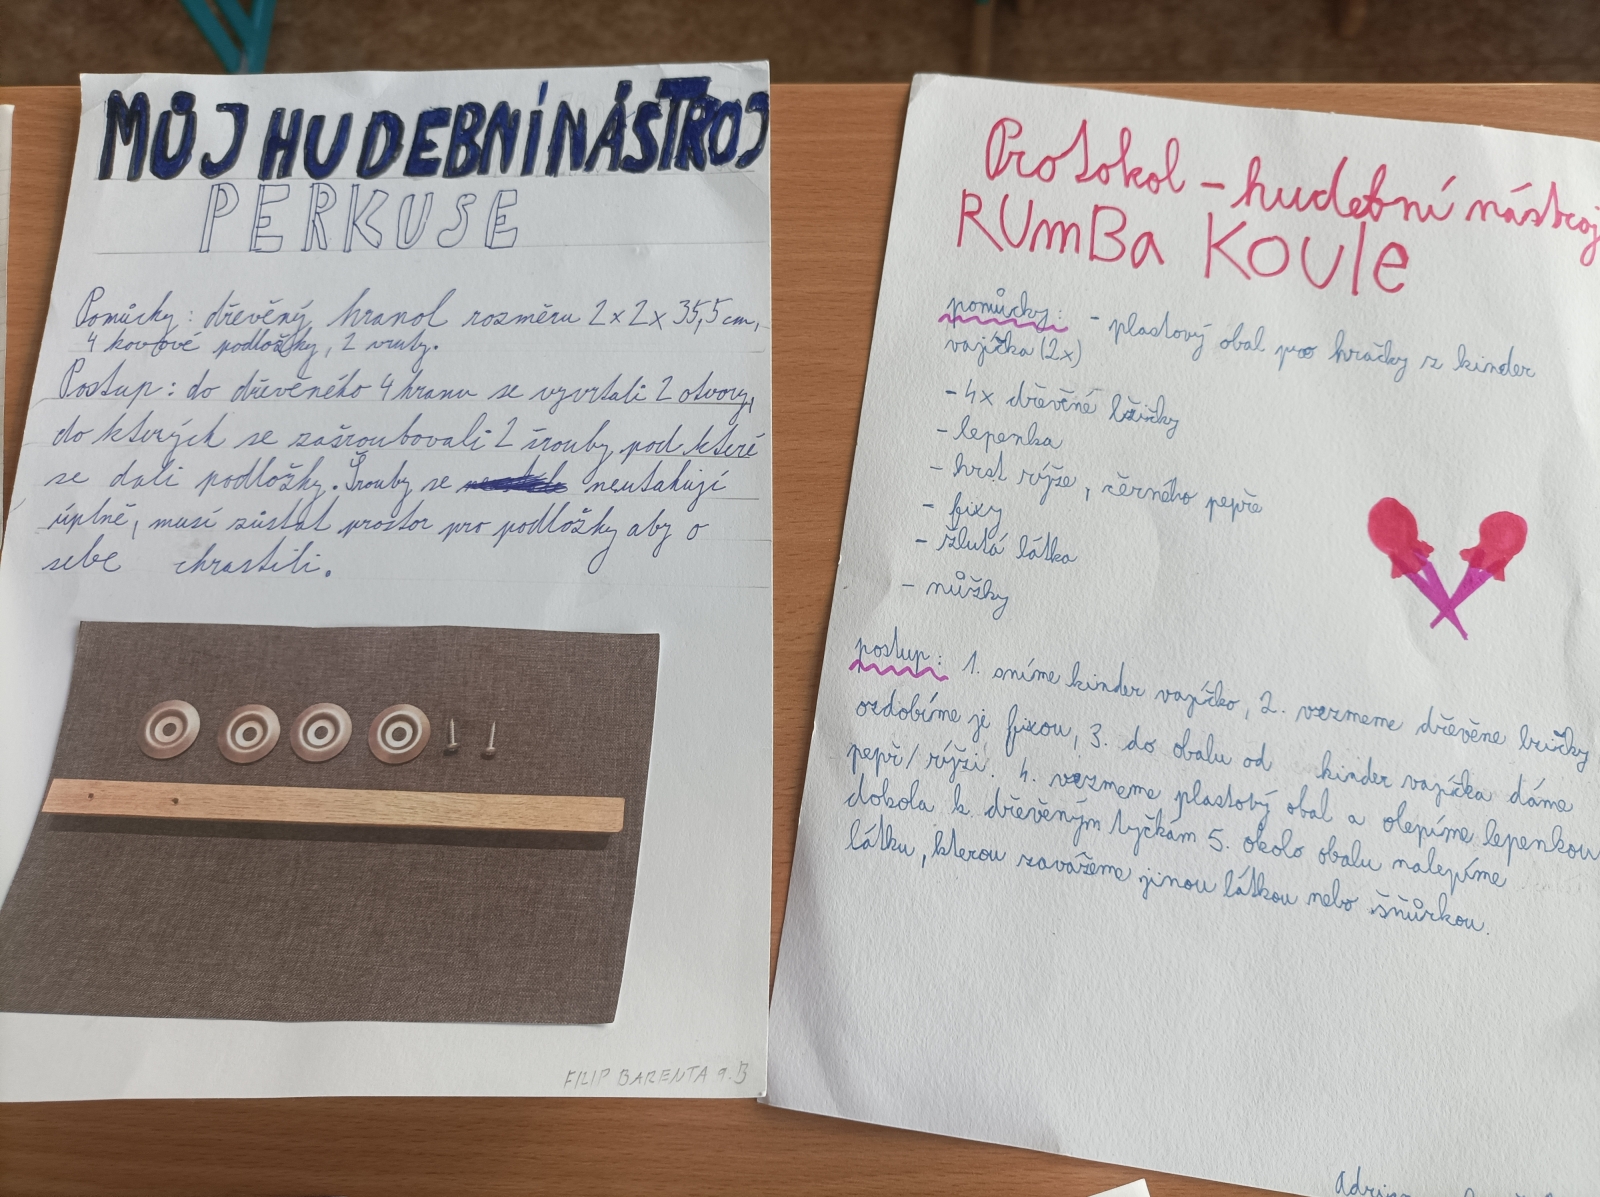 MŮJ HUDEBNÍ NÁSTROJ
PERKUSE
Pomůcky: dřevěný hranol rozměru 2x2x35,5 cm,
4 kovové podložky, 2 vruty.
Postup: do dřevěného 4hranu se vyvrtali 2 otvory,
do kterých se zašroubovali 2 šrouby pod které
se dali podložky. Šrouby se neutahují
úplně, musí zůstat prostor pro podložky aby o
sebe chrastili.
FILIP BARENTA 9.B
Protokol - hudební nástroj
RUMBA KOULE
pomůcky: - plastový obal pro hračky z kinder
vajíčka (2x)
- 4x dřevěné lžičky
- lepenka
- hrst rýže, černého pepře
- fixy
- žlutá látka
- nůžky
postup: 1. sníme kinder vajíčko, 2. vezmeme dřevěne lžičky
ozdobíme je fixou, 3. do obalu od kinder vajíčka dáme
pepř/rýži. 4. vezmeme plastový obal a olepíme lepenkou
dokola k dřevěným tyčkám 5. okolo obalu nalepíme
látku, kterou zavážeme jinou látkou nebo šňůrkou.